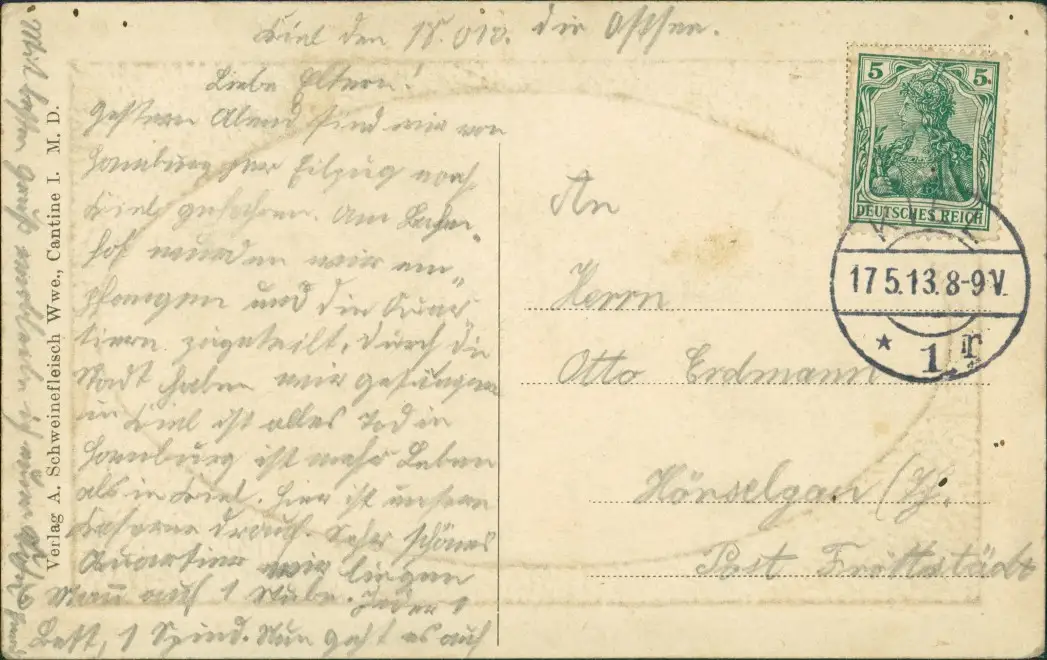 Kiel den die Ostsee.
Liebe Eltern!
Gestern Abend sind wir von
Hamburg per Eilzug nach
Kiel gefahren. Am Bahn-
hof wurden wir em-
pfangen und die Quar-
tiere zugeteilt. Durch die
Stadt haben wir gesungen
in Kiel ist alles Tod in
Hamburg ist mehr Leben
als in Kiel. Hier ist unsere
Kaserne drauf. Sehr schönes
Quartier wir liegen
Mann auf 1 Stube. Jeder 1
Bett, 1 Spind. Nun geht es auf
Verlag A. Schweinefleisch Wwe., Cantine I. M. D.
5 5
DEUTSCHES REICH
17.5.13.8-9 V.
* 1
An
Herrn
Otto Erdmann
Hörselgau (Th.
Post Fröttstädt